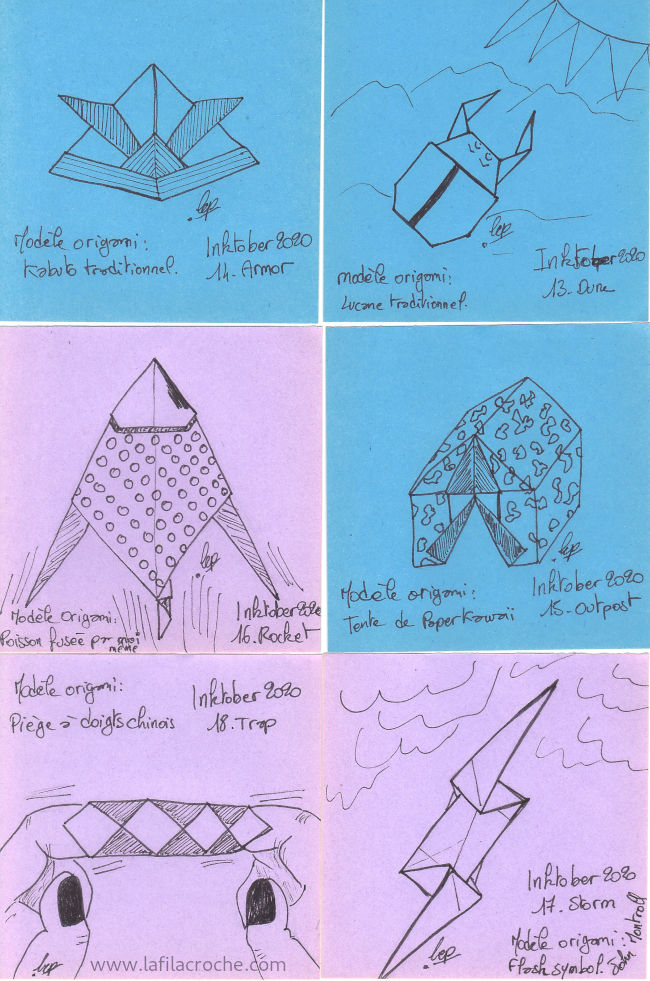 lep
Modèle origami:
Kabuto traditionnel.
Inktober 2020
14-Armor
lep
Modèle origami:
Lucane traditionnel.
Inktober 2020
13-Dune
lep
Modèle origami:
Poisson fusée par moi
même
Inktober 2020
16-Rocket
lep
Modèle origami:
Tente de Paper Kawaii
Inktober 2020
15-Outpost
Modèle origami:
Piège à doigts chinois
Inktober 2020
18-Trap
lep
www.lafilacroche.com
Inktober 2020
17-Storm
Modèle origami:
Flash symbol. John Montroll
lep